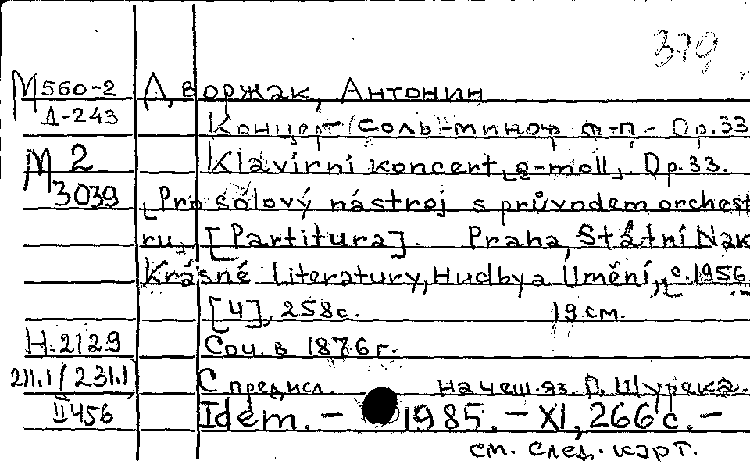 379
М560-2 Дворжак, Антонин
Д-243 Концерт (соль-минор ф-п. Op. 33
М 2 Klavírní koncert, g-moll, Op. 33.
3039 Pro sólový nástroj s průvodem orchest
ru, [Partitura]. Praha, Státní Nak
Krásné literatury, Hudby a Umění, c. 1956
[4], 258с. 19 см.
Н.2129 Соч. в 1876 г.
211.1/231.1 С предисл. на чеш. яз. П. Шурека.
II 456 Idem. - 1985. - XI, 266 с. -
см. след. карт.